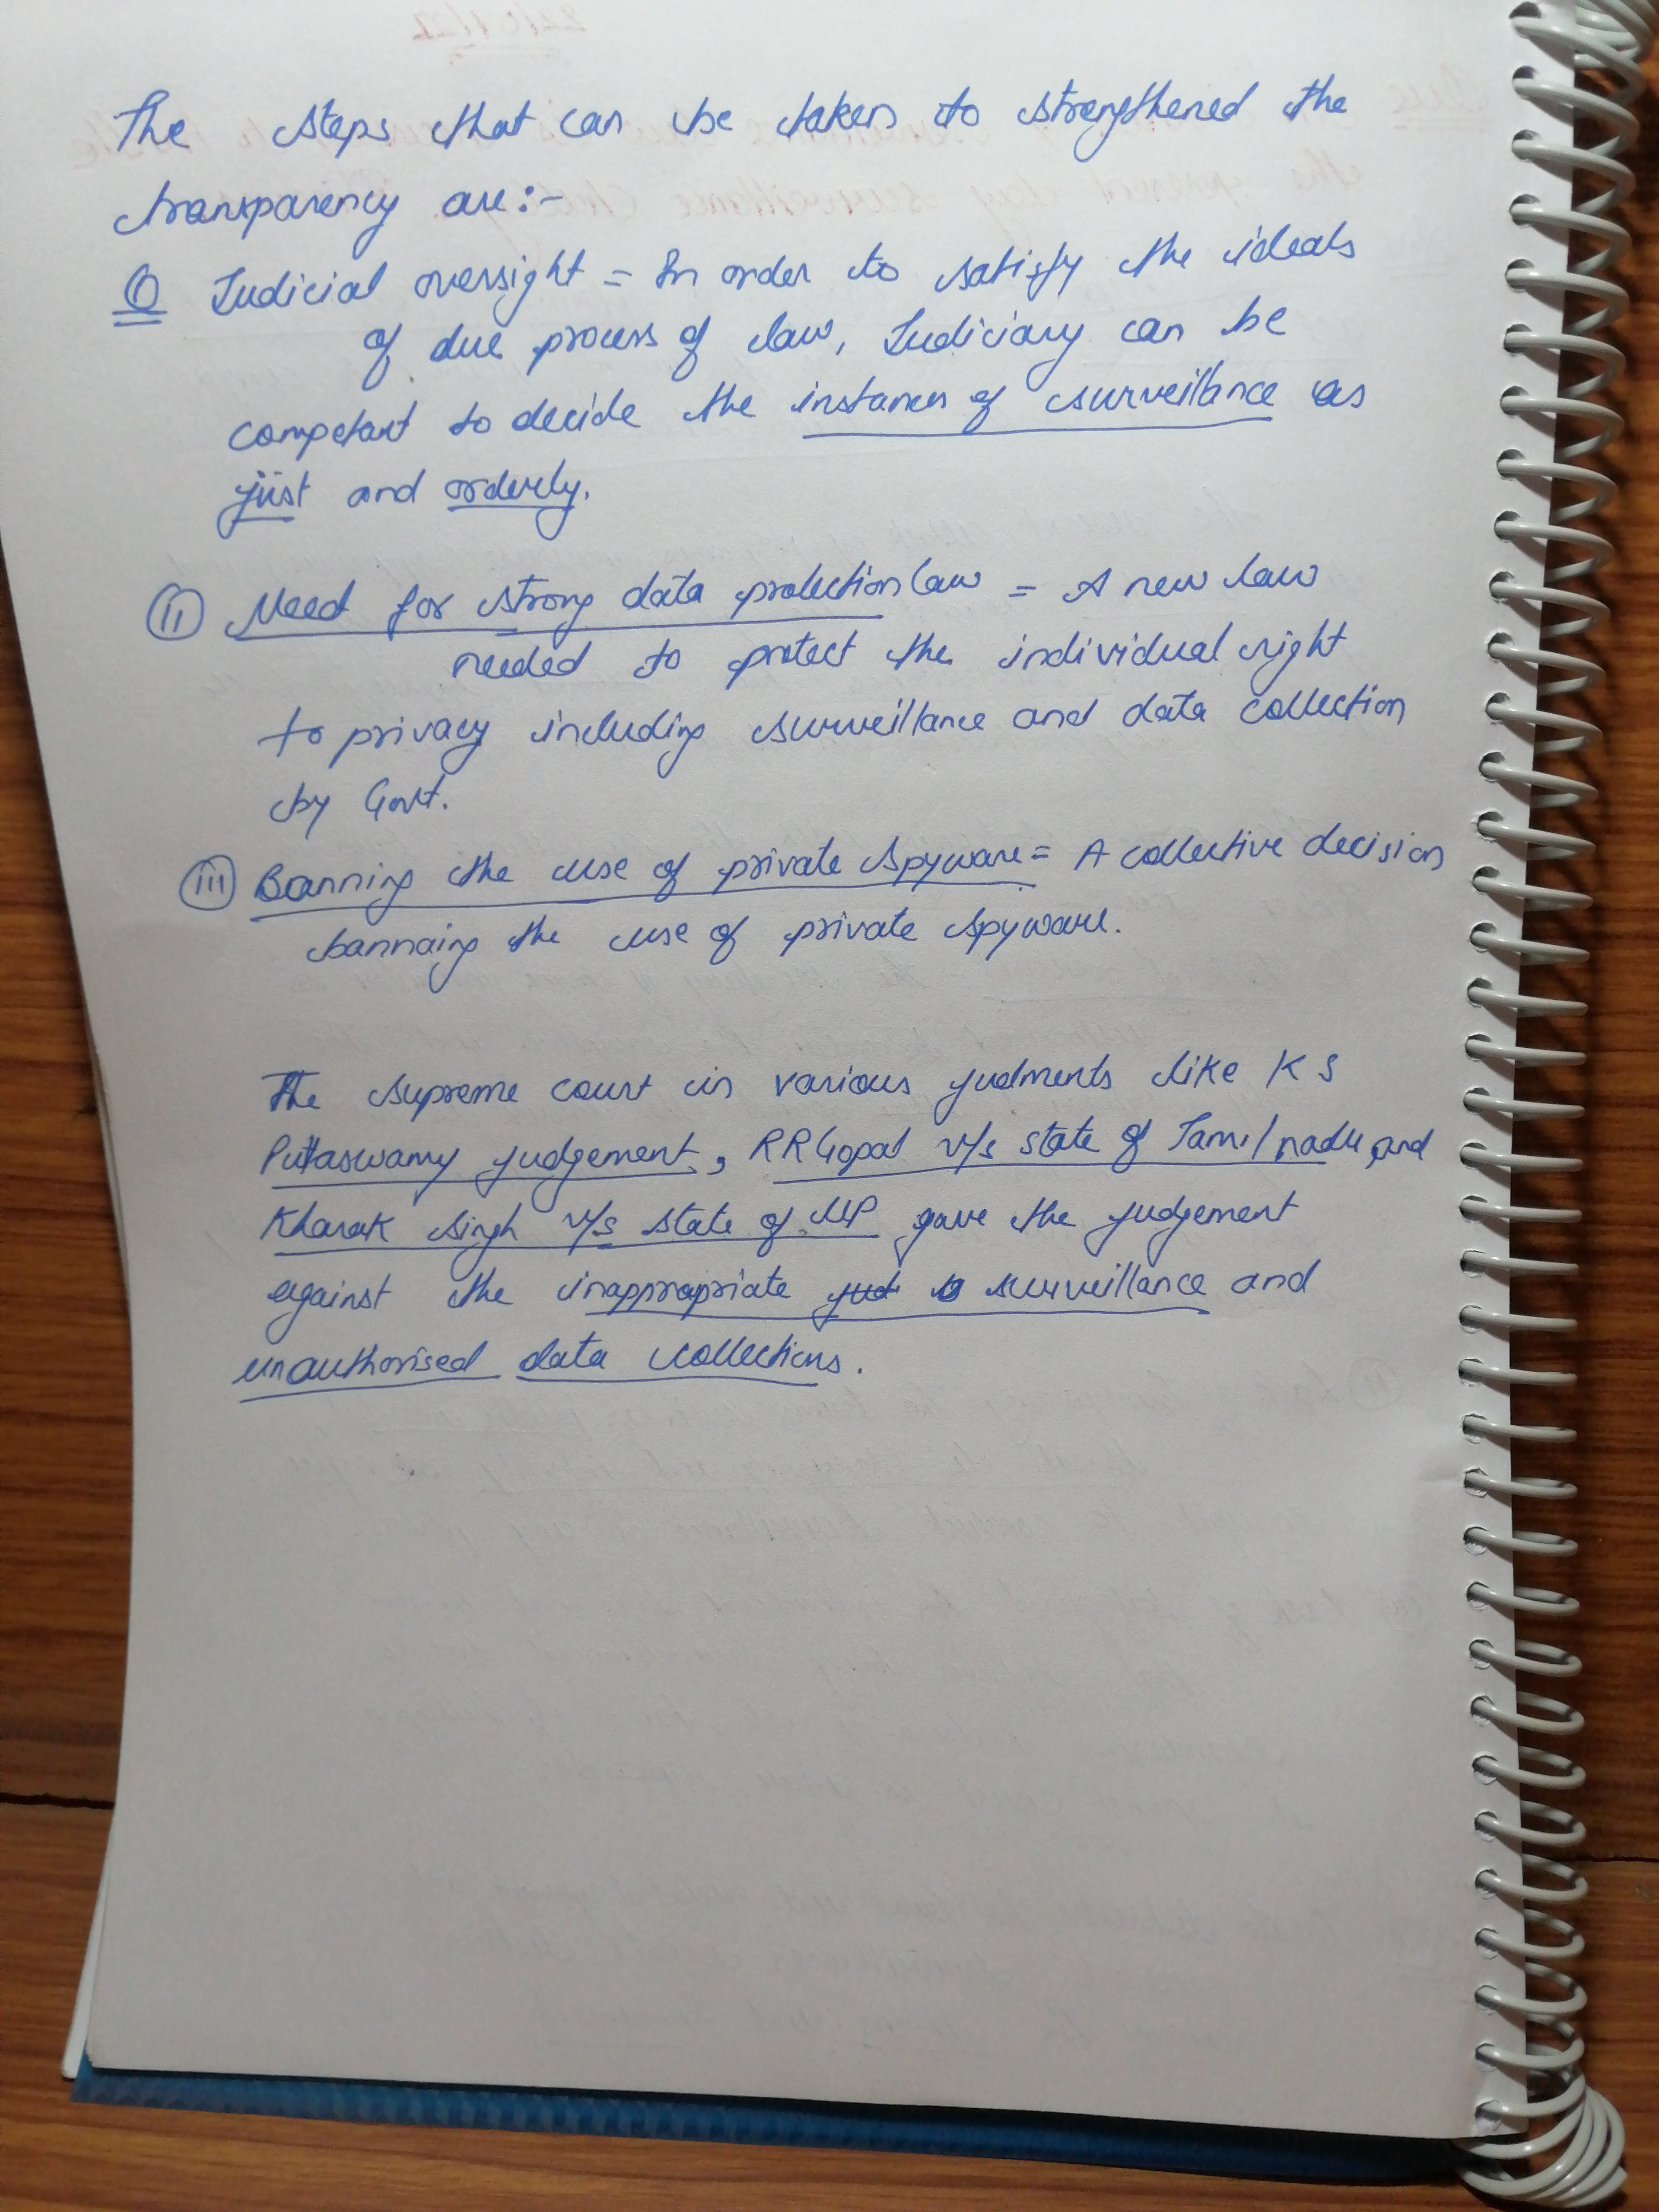 The steps that can be taken to strengthened the
transparency are:-
(i) Judicial oversight = In order to satisfy the ideals
of due process of law, Judiciary can be
competant to decide the instances of surveillance as
just and orderly.
(ii) Need for strong data protection law = A new law
needed to protect the individual right
to privacy including surveillance and data collection
by Govt.
(iii) Banning the use of private spyware = A collective decision
bannaing the use of private spyware.
The supreme court in various judments like K S
Puttaswamy judgement, RR Gopal v/s state of Tamil nadu and
Kharak singh v/s state of UP gave the judgement
against the inappropriate surveillance and
unauthorised data collections.